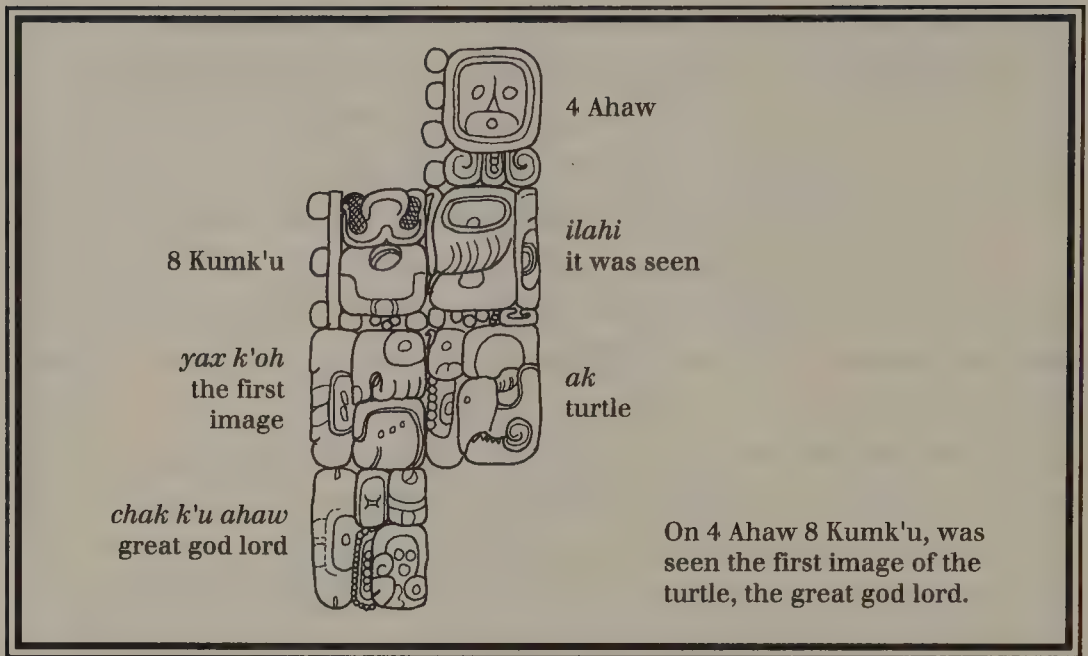 4 Ahaw
8 Kumk'u
ilahi
it was seen
yax k'oh
the first
image
ak
turtle
chak k'u ahaw
great god lord
On 4 Ahaw 8 Kumk'u, was
seen the first image of the
turtle, the great god lord.